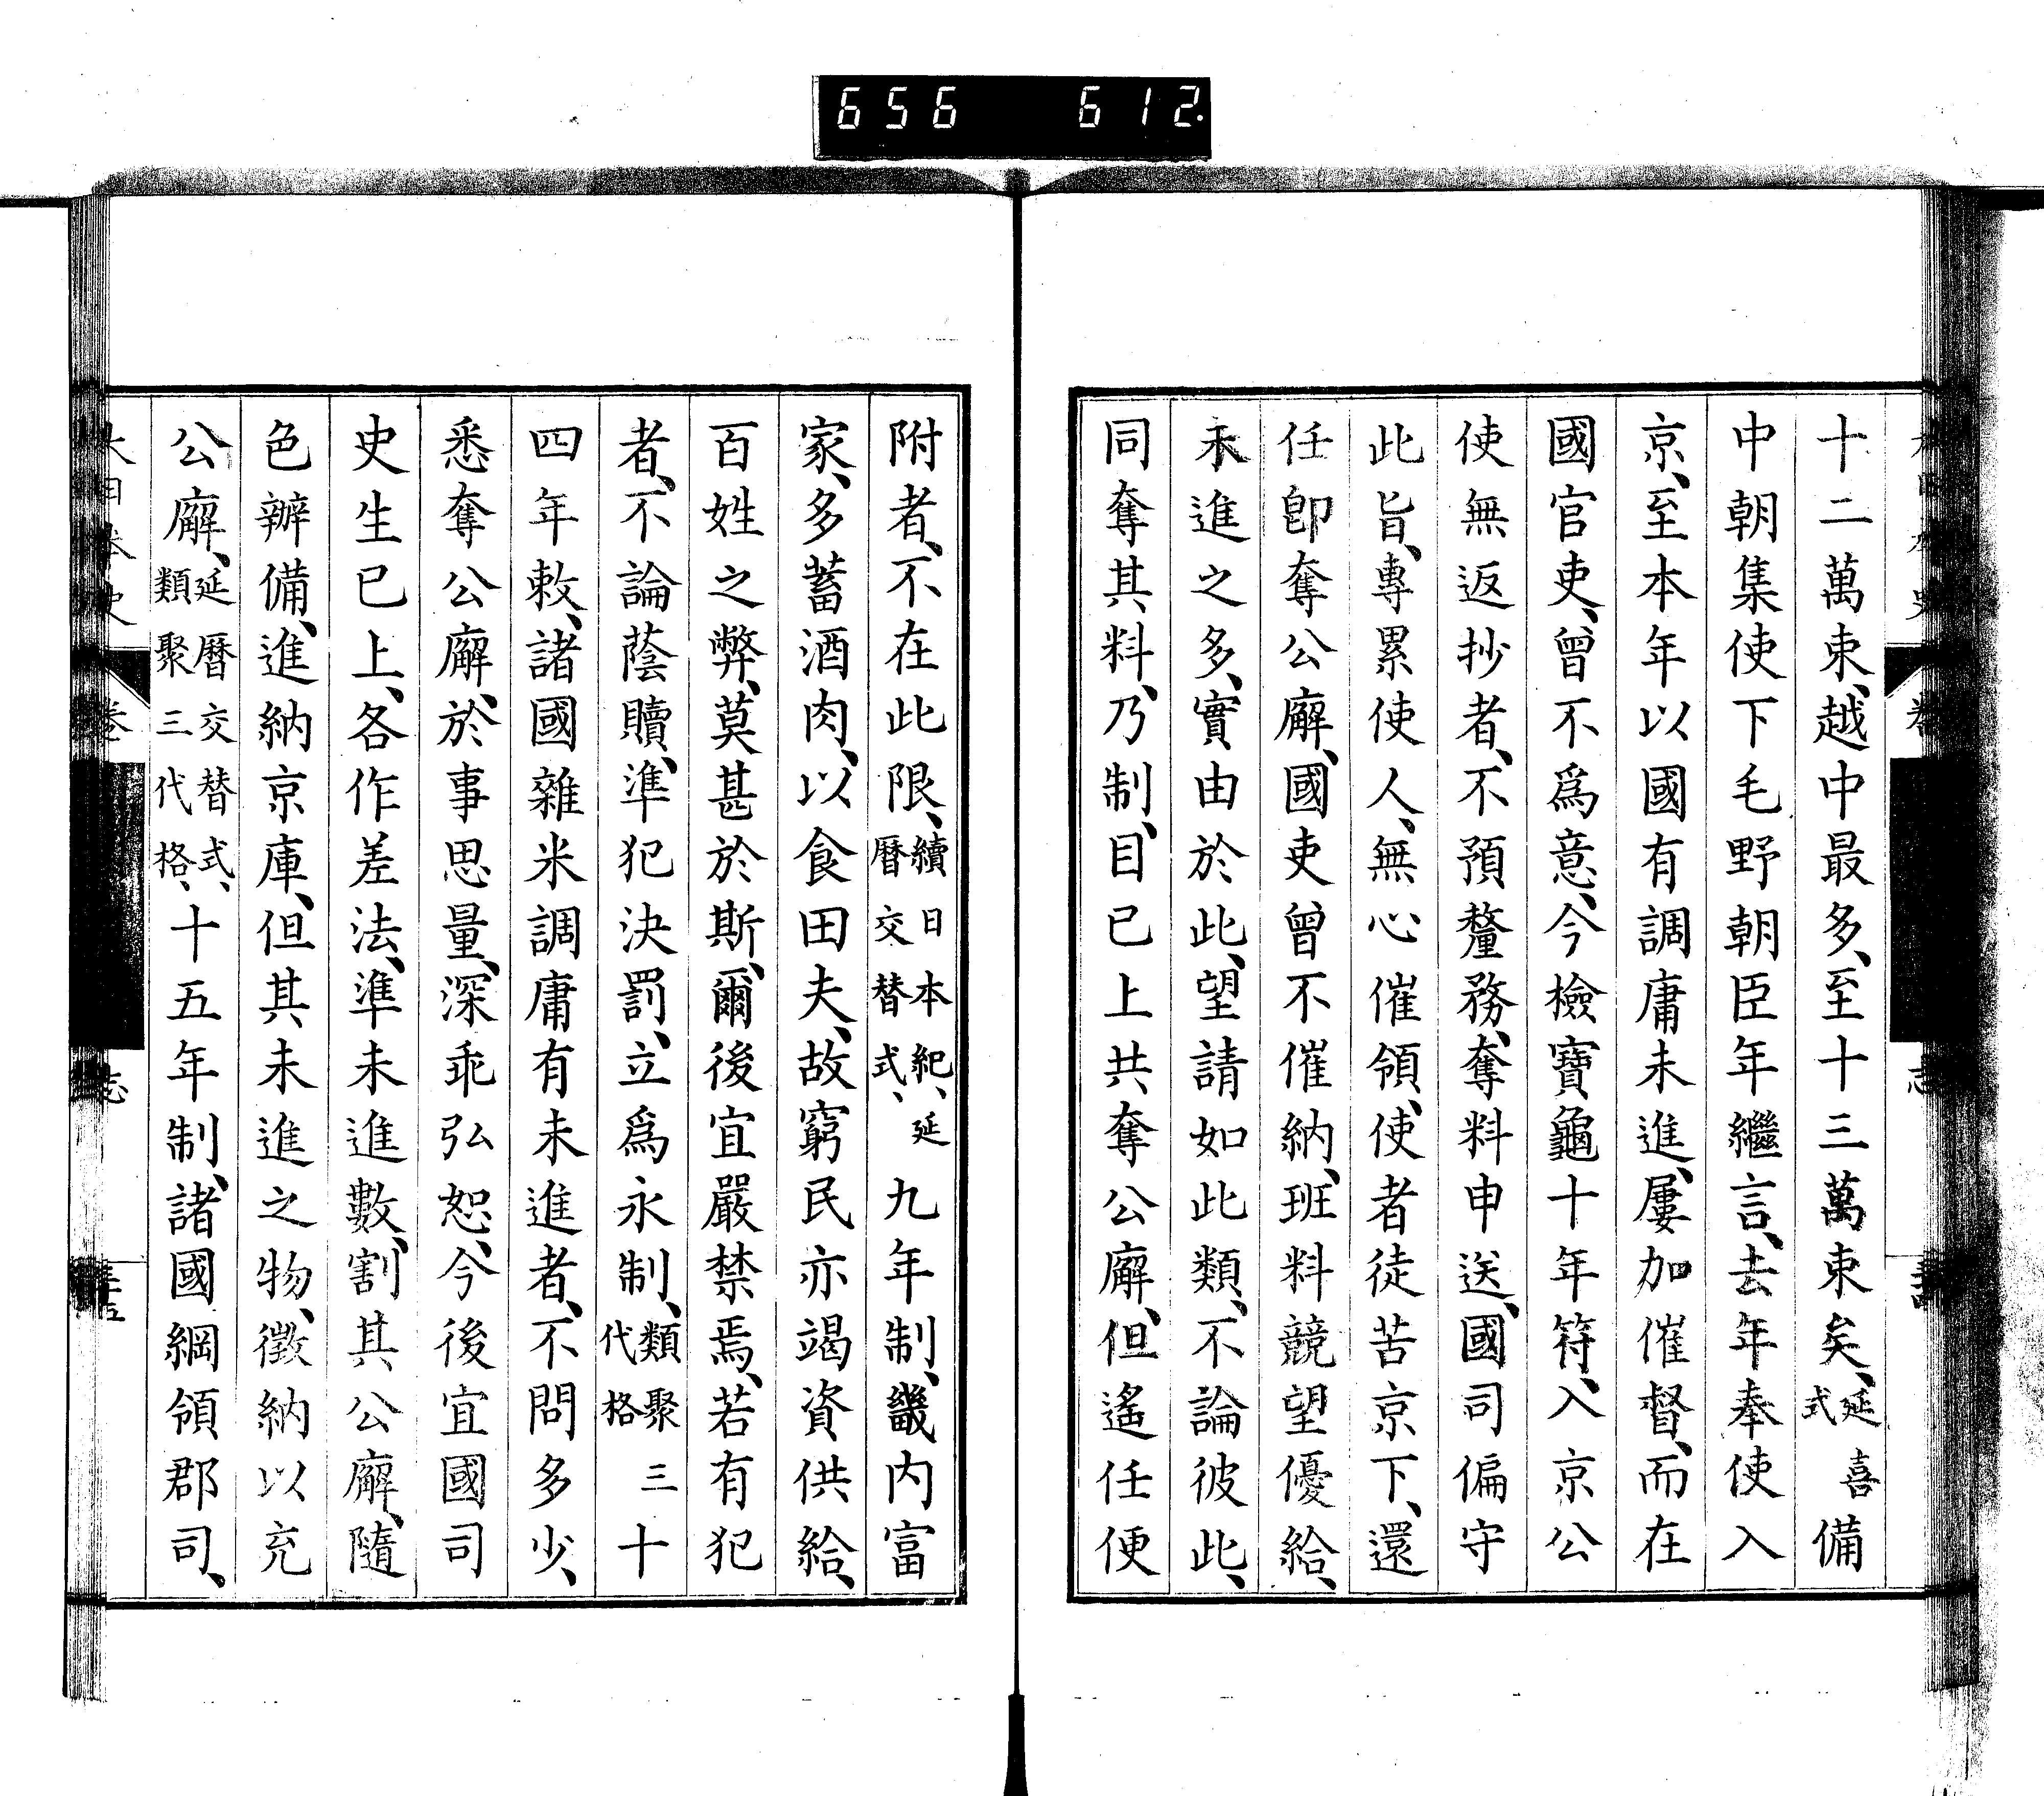 656 612
十二萬束、越中最多、至十三萬束矣、延喜式備
中朝集使下毛野朝臣年繼言、去年奉使入
京、至本年以國有調庸未進、屢加催督、而在
國官吏、曾不爲意、今檢寶龜十年符、入京公
使無返抄者、不預釐務、奪料申送、國司偏守
此旨、專累使人、無心催領、使者徒苦京下、還
任卽奪公廨、國吏曾不催納、班料競望優給、
未進之多、實由於此、望請如此類、不論彼此、
同奪其料、乃制、目已上共奪公廨、但遙任便
附者、不在此限、續日本紀、延曆交替式、九年制、畿內富
家、多蓄酒肉、以食田夫、故窮民亦竭資供給、
百姓之弊、莫甚於斯、爾後宜嚴禁焉、若有犯
者、不論蔭贖、準犯決罰、立爲永制、類聚三代格十
四年敕、諸國雜米調庸有未進者、不問多少、
悉奪公廨、於事思量、深乖弘恕、今後宜國司
史生已上、各作差法、準未進數、割其公廨、隨
色辦備、進納京庫、但其未進之物、徵納以充
公廨、延曆交替式、類聚三代格、十五年制、諸國綱領郡司、